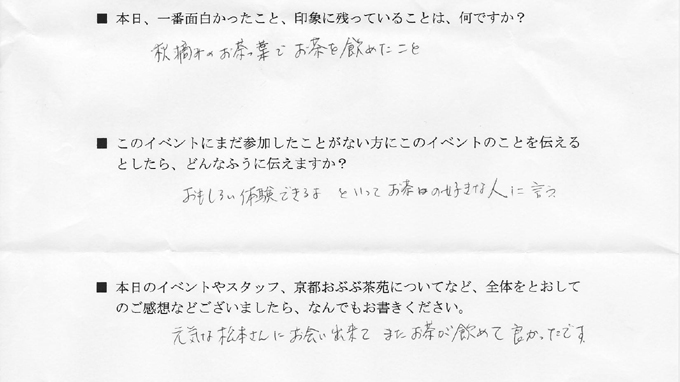 ■ 本日、一番面白かったこと、印象に残っていることは、何ですか？
秋摘みのお茶っ葉で お茶を飲めたこと
■ このイベントにまだ参加したことがない方にこのイベントのことを伝える
としたら、どんなふうに伝えますか？
おもしろい体験できるよ といって お茶の好きな人に言う
■ 本日のイベントやスタッフ、京都おぶぶ茶苑についてなど、全体をとおして
のご感想などございましたら、なんでもお書きください。
元気な松本さんにお会い出来て またお茶が飲めて良かったです